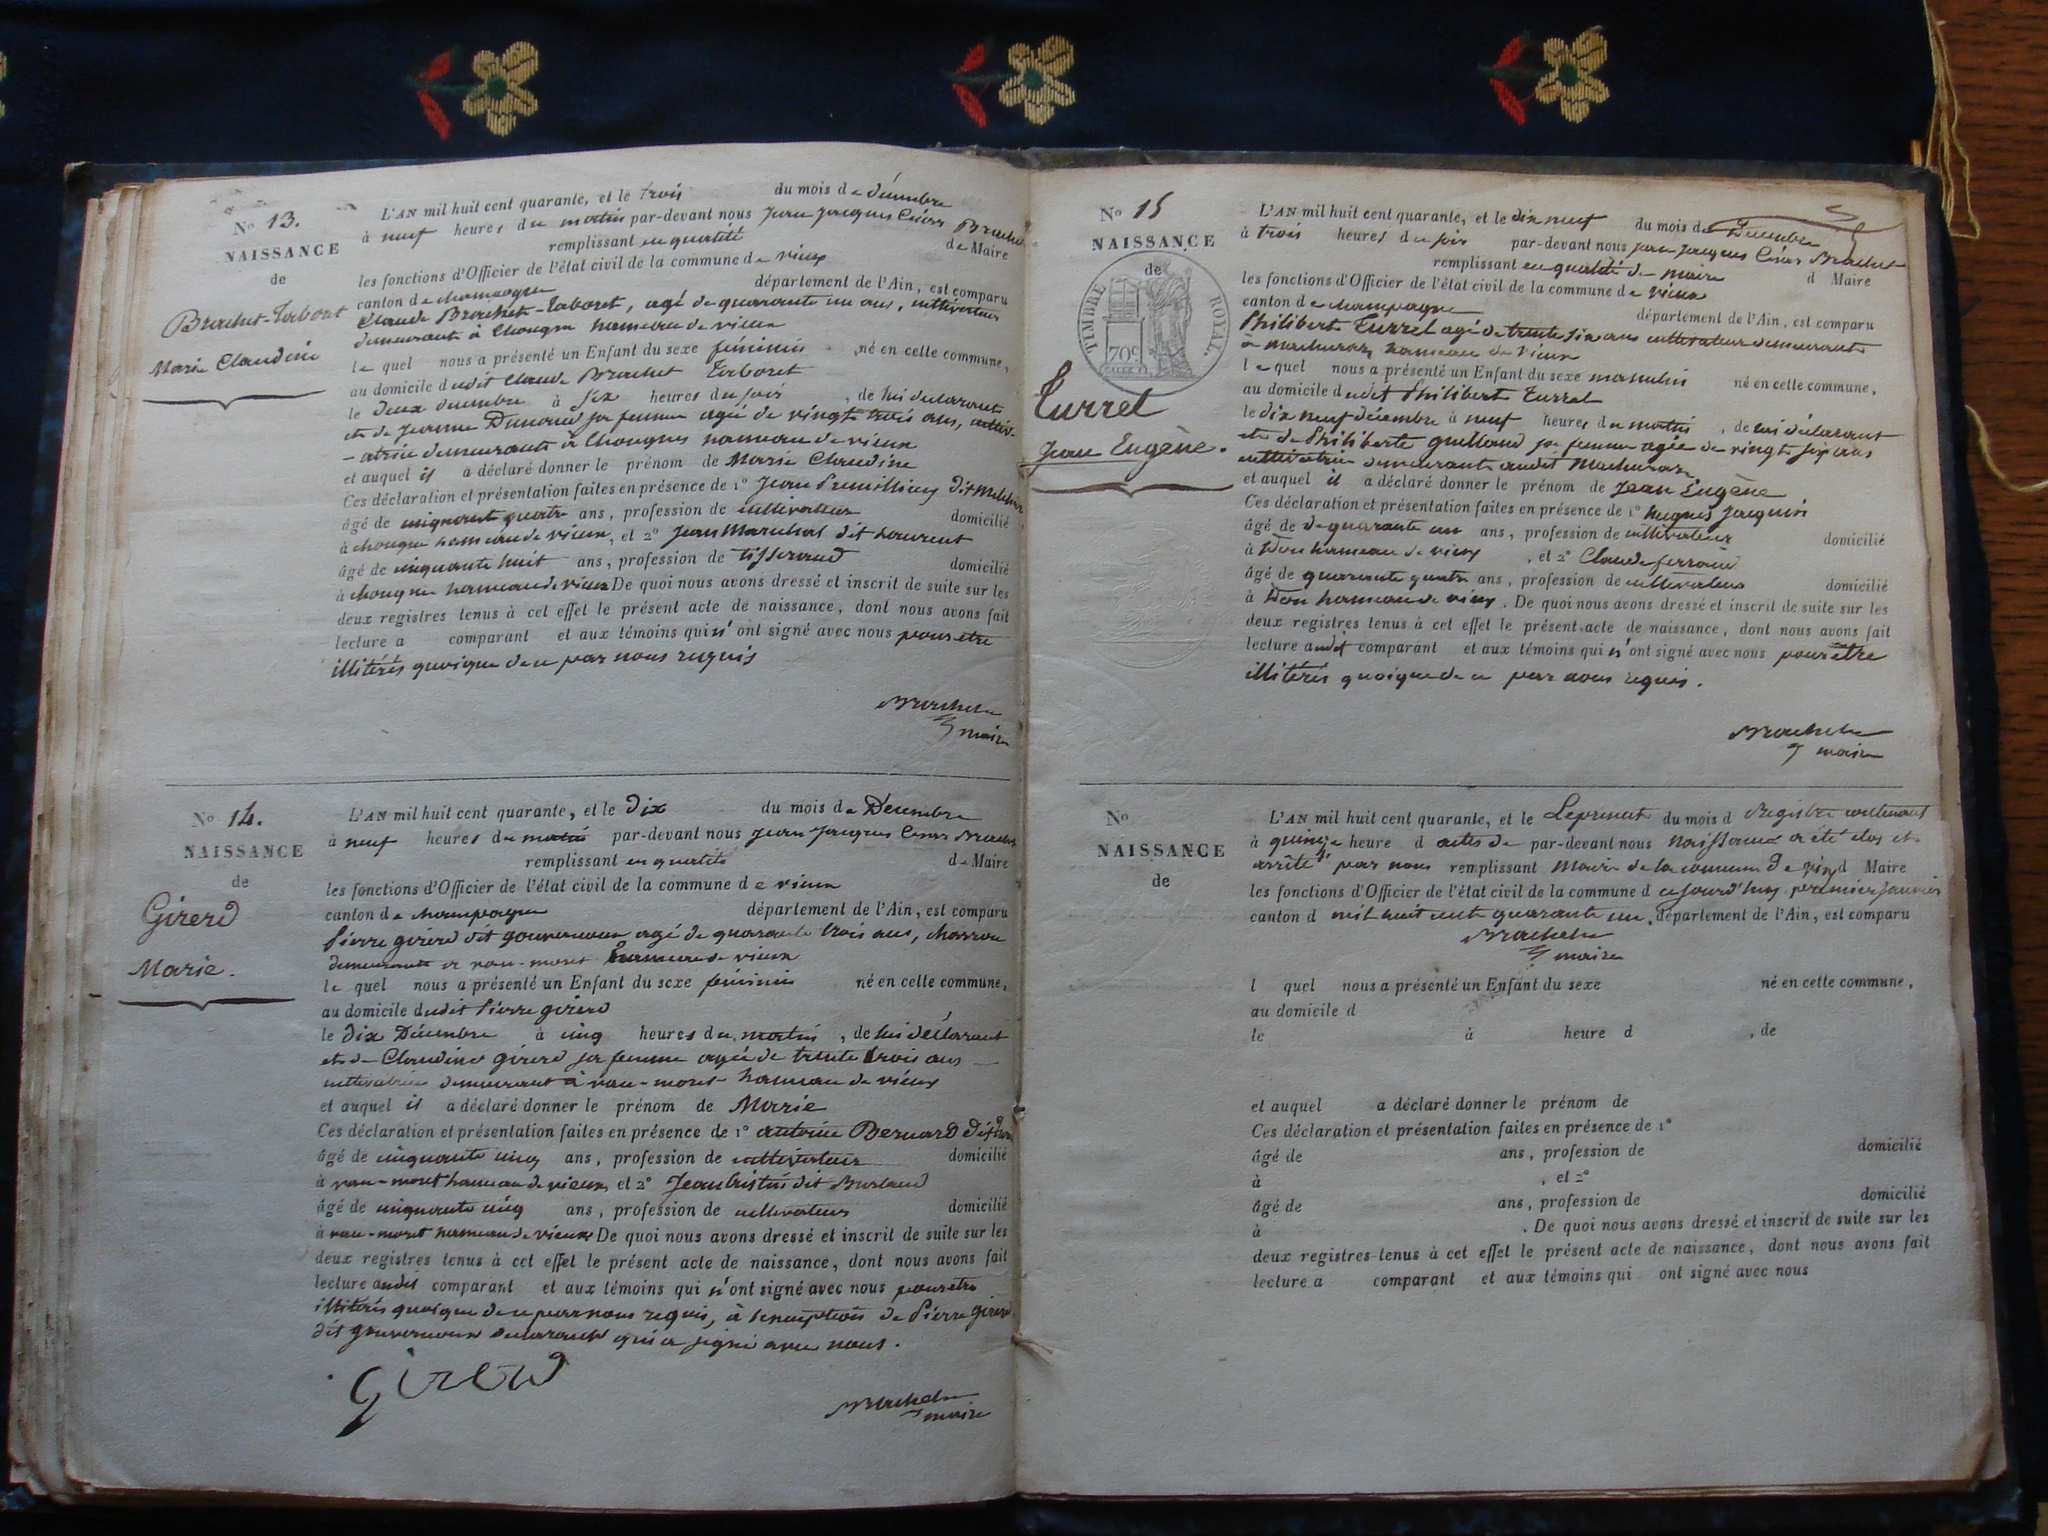 No 13.
NAISSANCE
de
Brachet-Taboret
Marie Claudine
L'AN mil huit cent quarante, et le trois du mois de décembre
à neuf heures du matin par-devant nous Jean Jacques César Brachet
remplissant en qualité de Maire
les fonctions d'Officier de l'état civil de la commune de vieux
canton de champagne département de l'Ain, est comparu
Claude Brachet-Taboret, agé de quarante un ans, cultivateur
demeurant à Chongne hameau de vieux
le quel nous a présenté un Enfant du sexe féminin né en cette commune,
au domicile dudit Claude Brachet Taboret
le deux décembre à six heures du soir, de lui déclarant
et de Jeanne sa femme agée de vingt trois ans, cultiv-
-atrice demeurante à Chongnes hameau de vieux
et auquel il a déclaré donner le prénom de Marie Claudine
Ces déclaration et présentation faites en présence de 1° Jean dit
âgé de cinquante quatre ans, profession de cultivateur domicilié
à chongne hameau de vieux, et 2° Jean Marechal dit Laurent
âgé de cinquante huit ans, profession de tisserand domicilié
à chongne hameau de vieux De quoi nous avons dressé et inscrit de suite sur les
deux registres tenus à cet effet le présent acte de naissance, dont nous avons fait
lecture a comparant et aux témoins qui n'ont signé avec nous pour etre
illitérés quoique de ce par nous requis
Brachet
maire
No 14.
NAISSANCE
de
Girerd
Marie.
L'AN mil huit cent quarante, et le dix du mois de Décembre
à neuf heures du matin par-devant nous Jean Jacques César Brachet
remplissant en qualité de Maire
les fonctions d'Officier de l'état civil de la commune de vieux
canton de champagne département de l'Ain, est comparu
Pierre girerd dit gouverneur agé de quarante trois ans, charron
demeurant à vau-moret hameau de vieux
le quel nous a présenté un Enfant du sexe féminin né en cette commune,
au domicile dudit Pierre girerd
le dix Décembre à cinq heures du matin, de lui déclarant
et de Claudine girerd sa femme agée de trente trois ans
cultivatrice demeurant à vau-moret hameau de vieux
et auquel il a déclaré donner le prénom de Marie
Ces déclaration et présentation faites en présence de 1° antoine Bernard dit
âgé de cinquante cinq ans, profession de cultivateur domicilié
à vau-moret hameau de vieux, et 2° Jean dit
âgé de cinquante cinq ans, profession de cultivateur domicilié
à vau-moret hameau de vieux De quoi nous avons dressé et inscrit de suite sur les
deux registres tenus à cet effet le présent acte de naissance, dont nous avons fait
lecture audit comparant et aux témoins qui n'ont signé avec nous pour etre
illitérés quoique de ce par nous requis, à l'exception de Pierre girerd
dit gouverneur déclarant qui a signé avec nous.
Girerd
Brachet
maire
No 15
NAISSANCE
de
TIMBRE ROYAL
70c
Turrel
Jean Eugène.
L'AN mil huit cent quarante, et le dix neuf du mois de Décembre
à trois heures du soir par-devant nous jean jacques César Brachet
remplissant en qualité de maire d Maire
les fonctions d'Officier de l'état civil de la commune de vieux
canton de champagne département de l'Ain, est comparu
Philibert Turrel agé de trente six ans cultivateur demeurant
à Machuraz hameau de Vieux
le quel nous a présenté un Enfant du sexe masculin né en cette commune,
au domicile dudit Philibert Turrel
le dix neuf décembre à neuf heures du matin, de lui déclarant
et de Philiberte guilland sa femme agée de vingt six ans
cultivatrice demeurante audit Machuraz
et auquel il a déclaré donner le prénom de Jean Eugène
Ces déclaration et présentation faites en présence de 1° hugues Jacquin
âgé de de quarante un ans, profession de cultivateur domicilié
à Don hameau de vieux, et 2° Claude
âgé de quarante quatre ans, profession de cultivateur domicilié
à Don hameau de vieux. De quoi nous avons dressé et inscrit de suite sur les
deux registres tenus à cet effet le présent acte de naissance, dont nous avons fait
lecture audit comparant et aux témoins qui n'ont signé avec nous pour être
illitérés quoique de ce par nous requis.
Brachet
maire
No
NAISSANCE
de
L'AN mil huit cent quarante, et le Le présent du mois d Registre contenant
à quinze heure d actes de par-devant nous naissance a été clos et
arrêté par nous remplissant Maire de la commune de vieux d Maire
les fonctions d'Officier de l'état civil de la commune d ce jourd'huy premier janvier
canton d mil huit cent quarante un. département de l'Ain, est comparu
Brachet
maire
l quel nous a présenté un Enfant du sexe né en cette commune,
au domicile d
le à heure d , de
et auquel a déclaré donner le prénom de
Ces déclaration et présentation faites en présence de 1°
âgé de ans, profession de domicilié
à , et 2°
âgé de ans, profession de domicilié
à . De quoi nous avons dressé et inscrit de suite sur les
deux registres tenus à cet effet le présent acte de naissance, dont nous avons fait
lecture a comparant et aux témoins qui ont signé avec nous